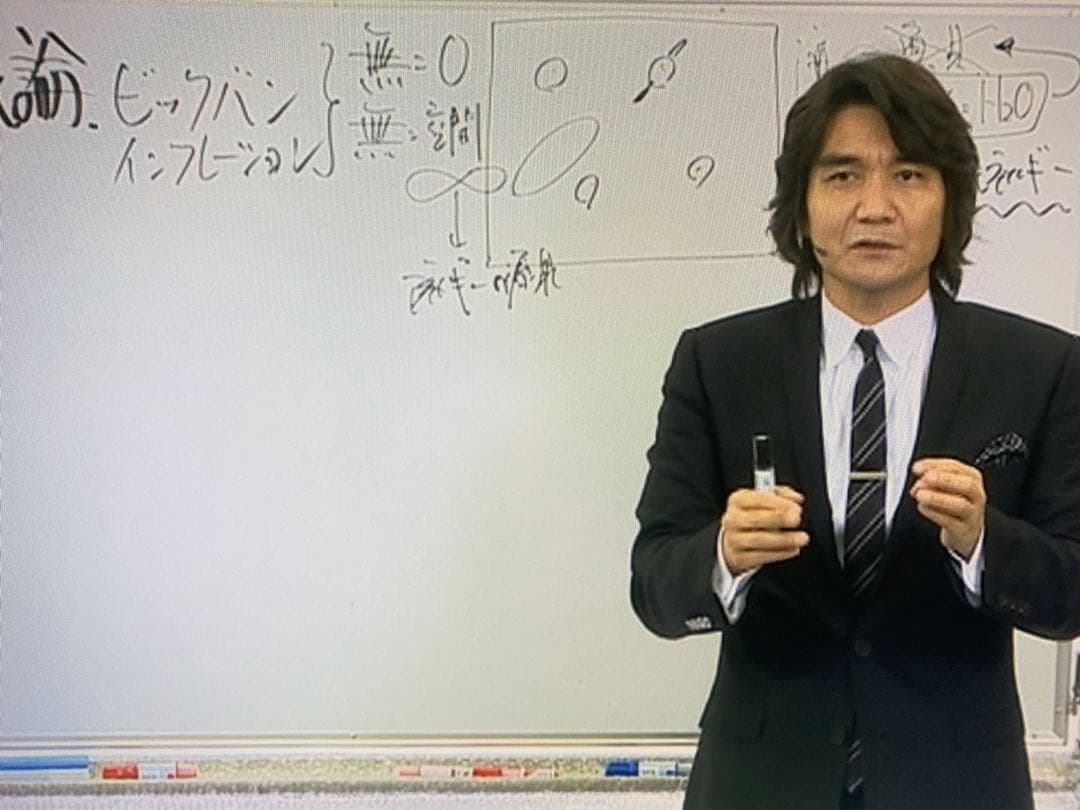 論. ビックバン
インフレーション
無=0
無=空間
エネルギーの源泉
H₂O
エネルギー